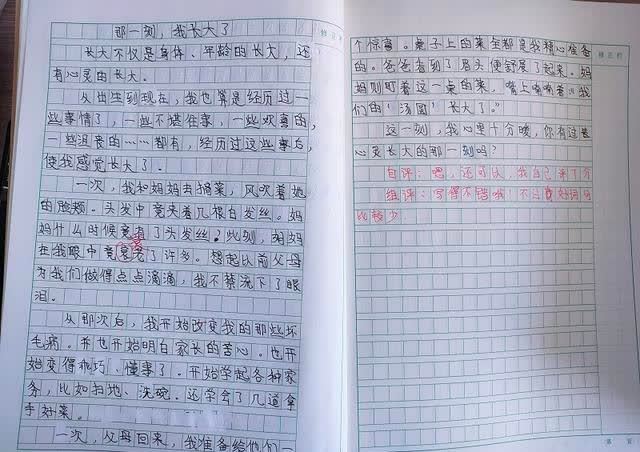 那一刻，我长大了
长大不仅是身体、年龄的长大，还
有心灵的长大。
从出生到现在，我也算是经历过一
些事情了，一些不堪往事，一些欢喜的，
一些沮丧的……都有，经历过这些事后，
使我感觉长大了。
一次，我和妈妈去摘菜，风吹着她
的脸颊。头发中竟夹着几根白发丝。妈
妈什么时候竟有了头发丝？此刻，妈妈
在我眼中竟衰老了许多。想起以前父母
为我们做得点点滴滴，我不禁流下了眼
泪。
从那次后，我开始改变我的那些坏
毛病。并也开始明白家长的苦心。也开
始变得乖巧、懂事了。开始学起各种家
务，比如扫地、洗碗。还学会了几道拿
手好菜。
一次，父母回来，我准备给他们一
个惊喜。桌子上的菜全都是我精心准备
的。爸爸看到了眉头便舒展了起来。妈
妈则盯着这一桌的菜，嘴上喃喃着“我
们的‘汤圆’长大了。”
这一刻，我心里十分暖，你有过
心灵长大的那一刻吗？
自评：嗯，还可以，我自己来了个
组评：写得不错哦！不过好词
比较少
修正栏
修正栏
第 页